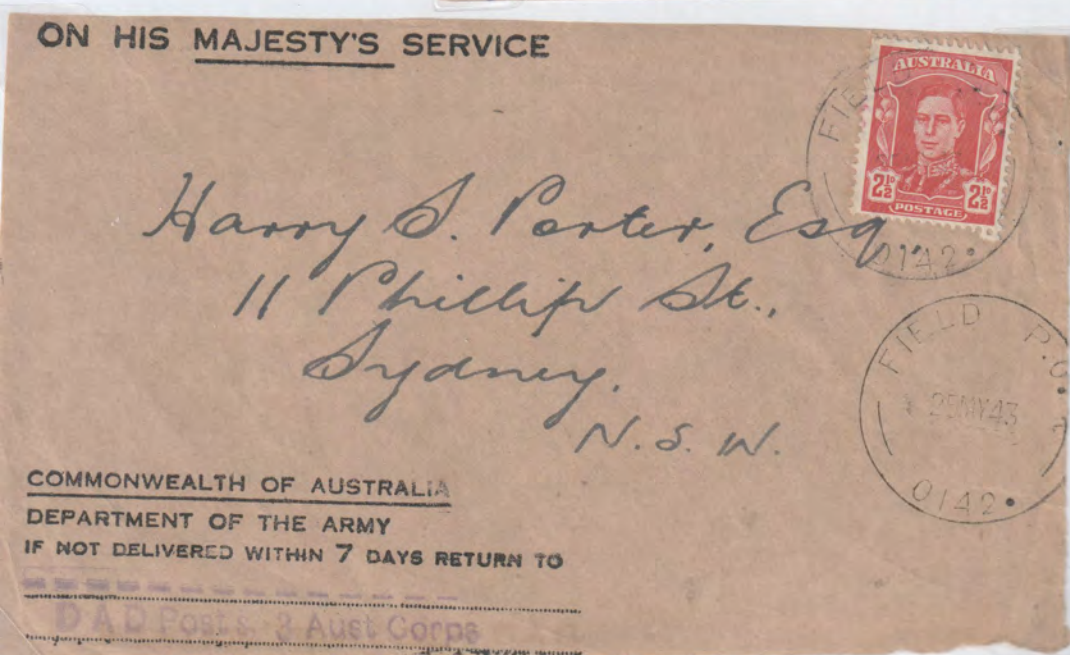 ON HIS MAJESTY'S SERVICE
AUSTRALIA
2½D 2½D
POSTAGE
FIELD
0142
Harry S. Porter, Esq.,
11 Phillip St.,
Sydney.
N.S.W.
FIELD P.O.
25MY43
0142
COMMONWEALTH OF AUSTRALIA
DEPARTMENT OF THE ARMY
IF NOT DELIVERED WITHIN 7 DAYS RETURN TO
DAD Posts, Aust Corps